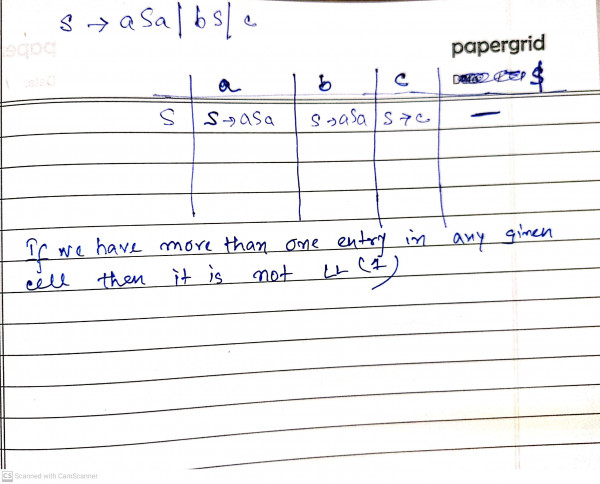 S → aSa | bS | c
papergrid
a b c $
S S→aSa S→aSa S→c —
If we have more than one entry in any given
cell then it is not LL (1)
CS Scanned with CamScanner